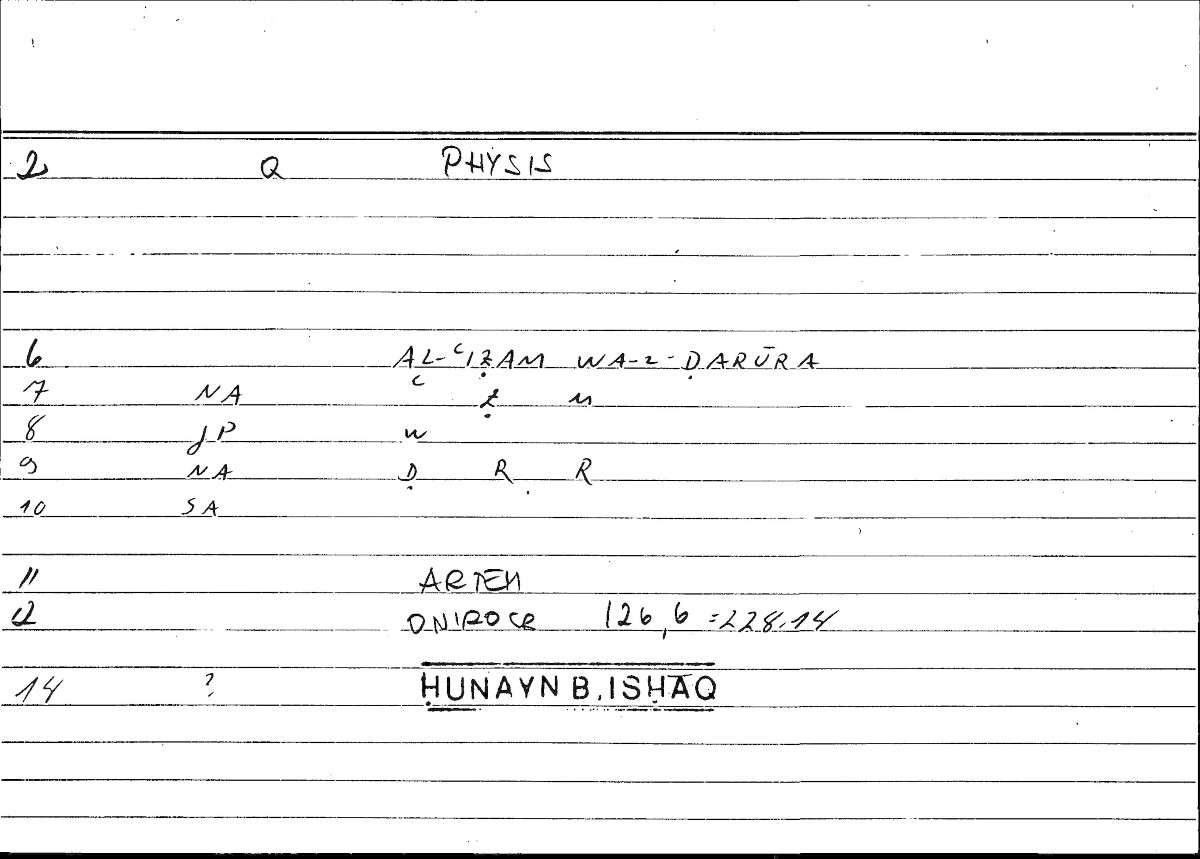 2 Q PHYSIS
6 AL-ʿIẒAM WA-L-ḌARŪRA
7 NA ʿ Ẓ M
8 JP W
9 NA Ḍ R R
10 SA
11 ARTEM
12 ONIROCR 126,6 = 228.14
14 ? ḤUNAYN B. ISḤĀQ